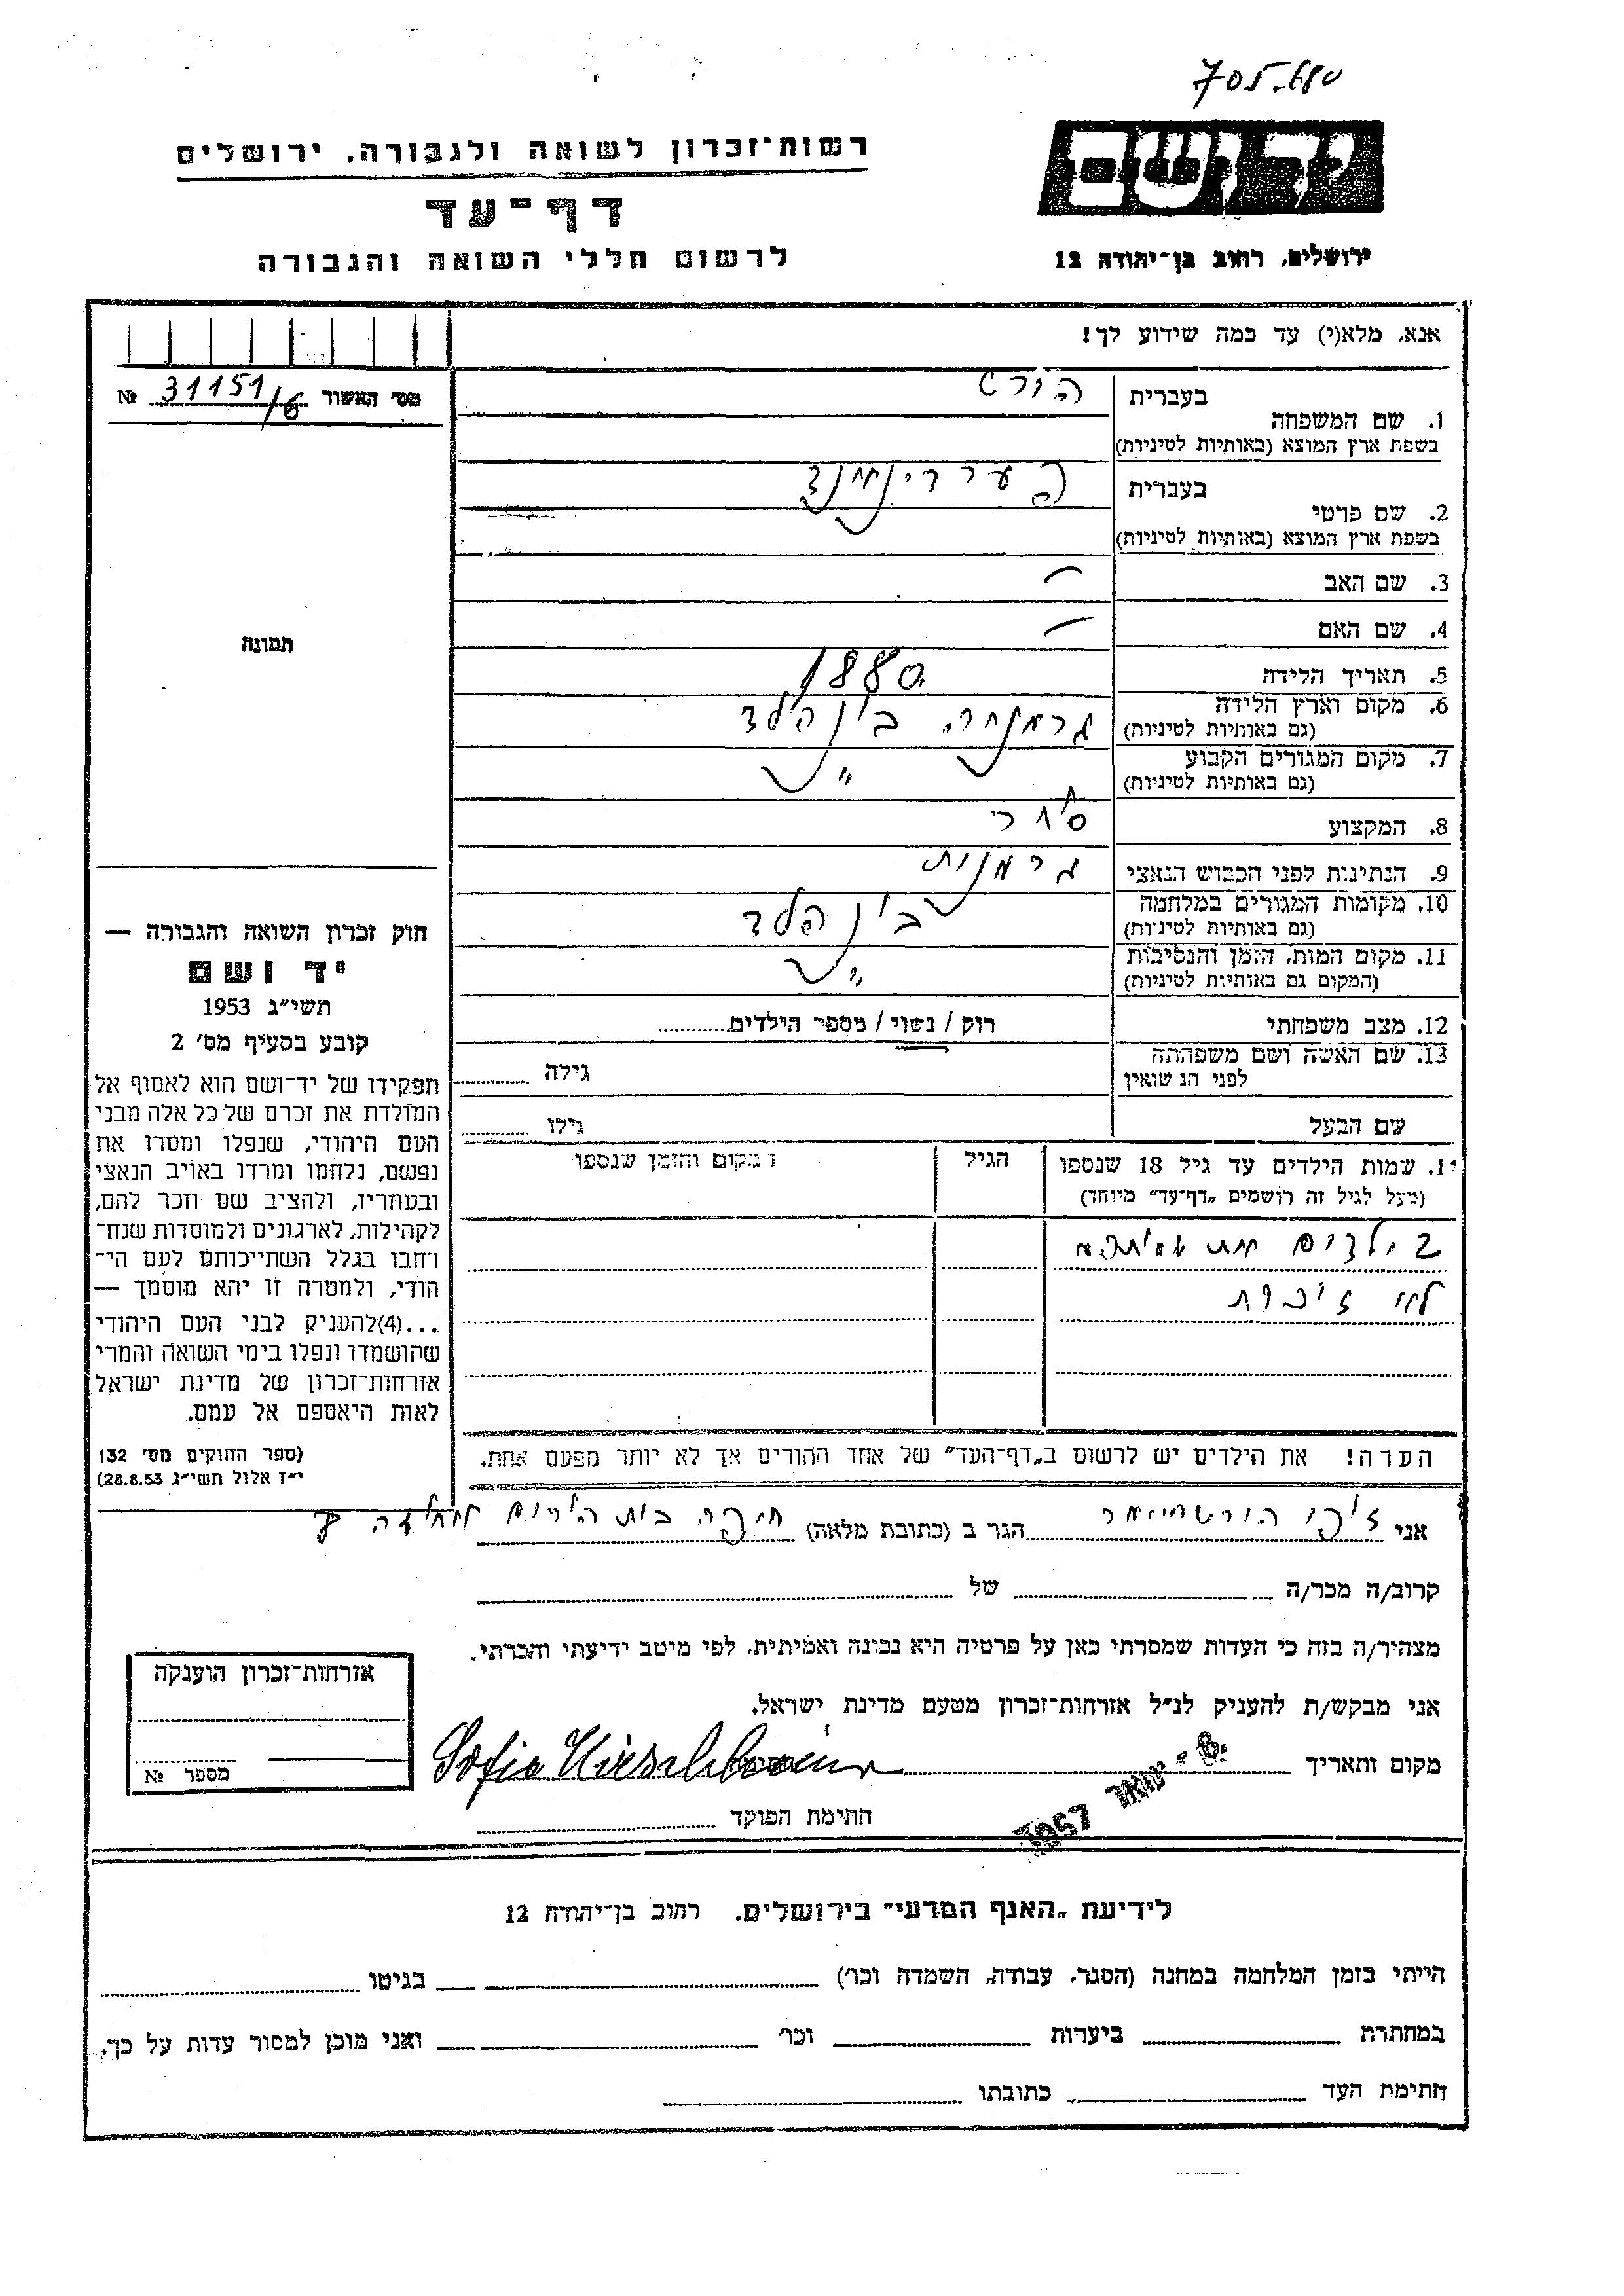 705.680
יד ושם
ירושלים, רחוב בן־יהודה 12
רשות־זכרון לשואה ולגבורה, ירושלים
דף־עד
לרשום חללי השואה והגבורה
אנא, מלא(י) עד כמה שידוע לך!
מס׳ האשור 31151/6 №
בעברית הורש
1. שם המשפחה
בשפת ארץ המוצא (באותיות לטיניות)
בעברית פערדינאנד
2. שם פרטי
בשפת ארץ המוצא (באותיות לטיניות)
3. שם האב —
4. שם האם —
5. תאריך הלידה 1880
6. מקום וארץ הלידה גרמניה,
(גם באותיות לטיניות)
7. מקום המגורים הקבוע "
(גם באותיות לטיניות)
8. המקצוע סוחר
9. הנתינות לפני הכבוש הנאצי גרמנית
10. מקומות המגורים במלחמה
(גם באותיות לטיניות)
11. מקום המות, הזמן והנסיבות "
(המקום גם באותיות לטיניות)
12. מצב משפחתי רוק / נשוי / מספר הילדים
13. שם האשה ושם משפחתה גילה
לפני הנשואין
שם הבעל גילו
1. שמות הילדים עד גיל 18 שנספו הגיל המקום והזמן שנספו
(מעל לגיל זה רושמים „דף־עד" מיוחד)
2 ילדים
לא זוכרת
הערה! את הילדים יש לרשום ב„דף־העד" של אחד ההורים אך לא יותר מפעם אחת.
תמונה
חוק זכרון השואה והגבורה —
יד ושם
תשי״ג 1953
קובע בסעיף מס׳ 2
תפקידו של יד־ושם הוא לאסוף אל
המולדת את זכרם של כל אלה מבני
העם היהודי, שנפלו ומסרו את
נפשם, נלחמו ומרדו באויב הנאצי
ובעוזריו, ולהציב שם וזכר להם,
לקהילות, לארגונים ולמוסדות שנח־
רחבו בגלל השתייכותם לעם הי־
הודי, ולמטרה זו יהא מוסמך —
...(4)להעניק לבני העם היהודי
שהושמדו ונפלו בימי השואה והמרי
אזרחות־זכרון של מדינת ישראל
לאות היאספם אל עמם.
(ספר החוקים מס׳ 132
י״ז אלול תשי״ג 28.8.53)
אני הגר ב (כתובת מלאה) חיפה
קרוב/ה מכר/ה של
מצהיר/ה בזה כי העדות שמסרתי כאן על פרטיה היא נכונה ואמיתית, לפי מיטב ידיעתי והכרתי.
אני מבקש/ת להעניק לנ״ל אזרחות־זכרון מטעם מדינת ישראל.
מקום ותאריך 8 - ינואר 1957 Sofie
חתימת הפוקד
אזרחות־זכרון הוענקה
מספר №
לידיעת „האגף המדעי" בירושלים, רחוב בן־יהודה 12
הייתי בזמן המלחמה במחנה (הסגר, עבודה, השמדה וכו׳) בגיטו
במחתרת ביערות וכו׳ ואני מוכן למסור עדות על כך.
חתימת העד כתובתו